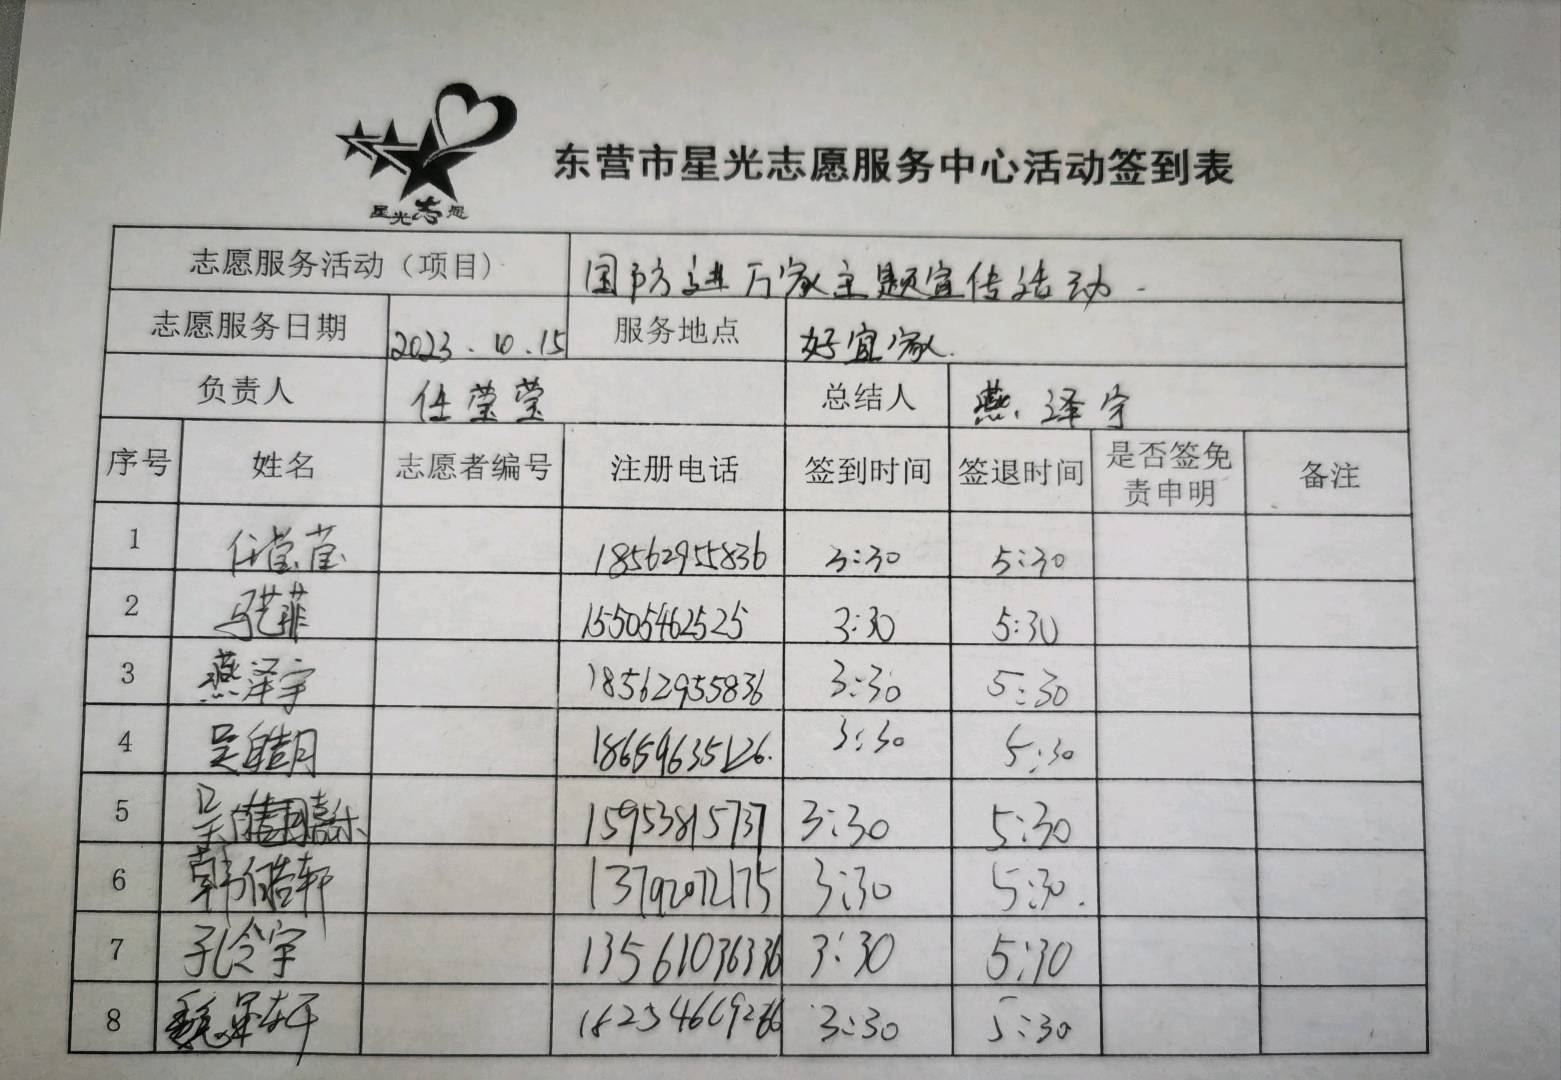 星光志愿
东营市星光志愿服务中心活动签到表
志愿服务活动（项目） 国防进万家主题宣传活动.
志愿服务日期 2023.10.15 服务地点 好宜家.
负责人 任莹莹 总结人 燕泽宇
序号 姓名 志愿者编号 注册电话 签到时间 签退时间 是否签免责申明 备注
1 任莹莹 18562955836 3:30 5:30
2 马艺菲 15505462525 3:30 5:30
3 燕泽宇 18562955836 3:30 5:30
4 吴皓月 18659635126. 3:30 5:30
5 吴 15953815737 3:30 5:30
6 韩皓轩 13792072175 3:30 5:30.
7 孔令宇 13561036336 3:30 5:30
8 3:30 5:30